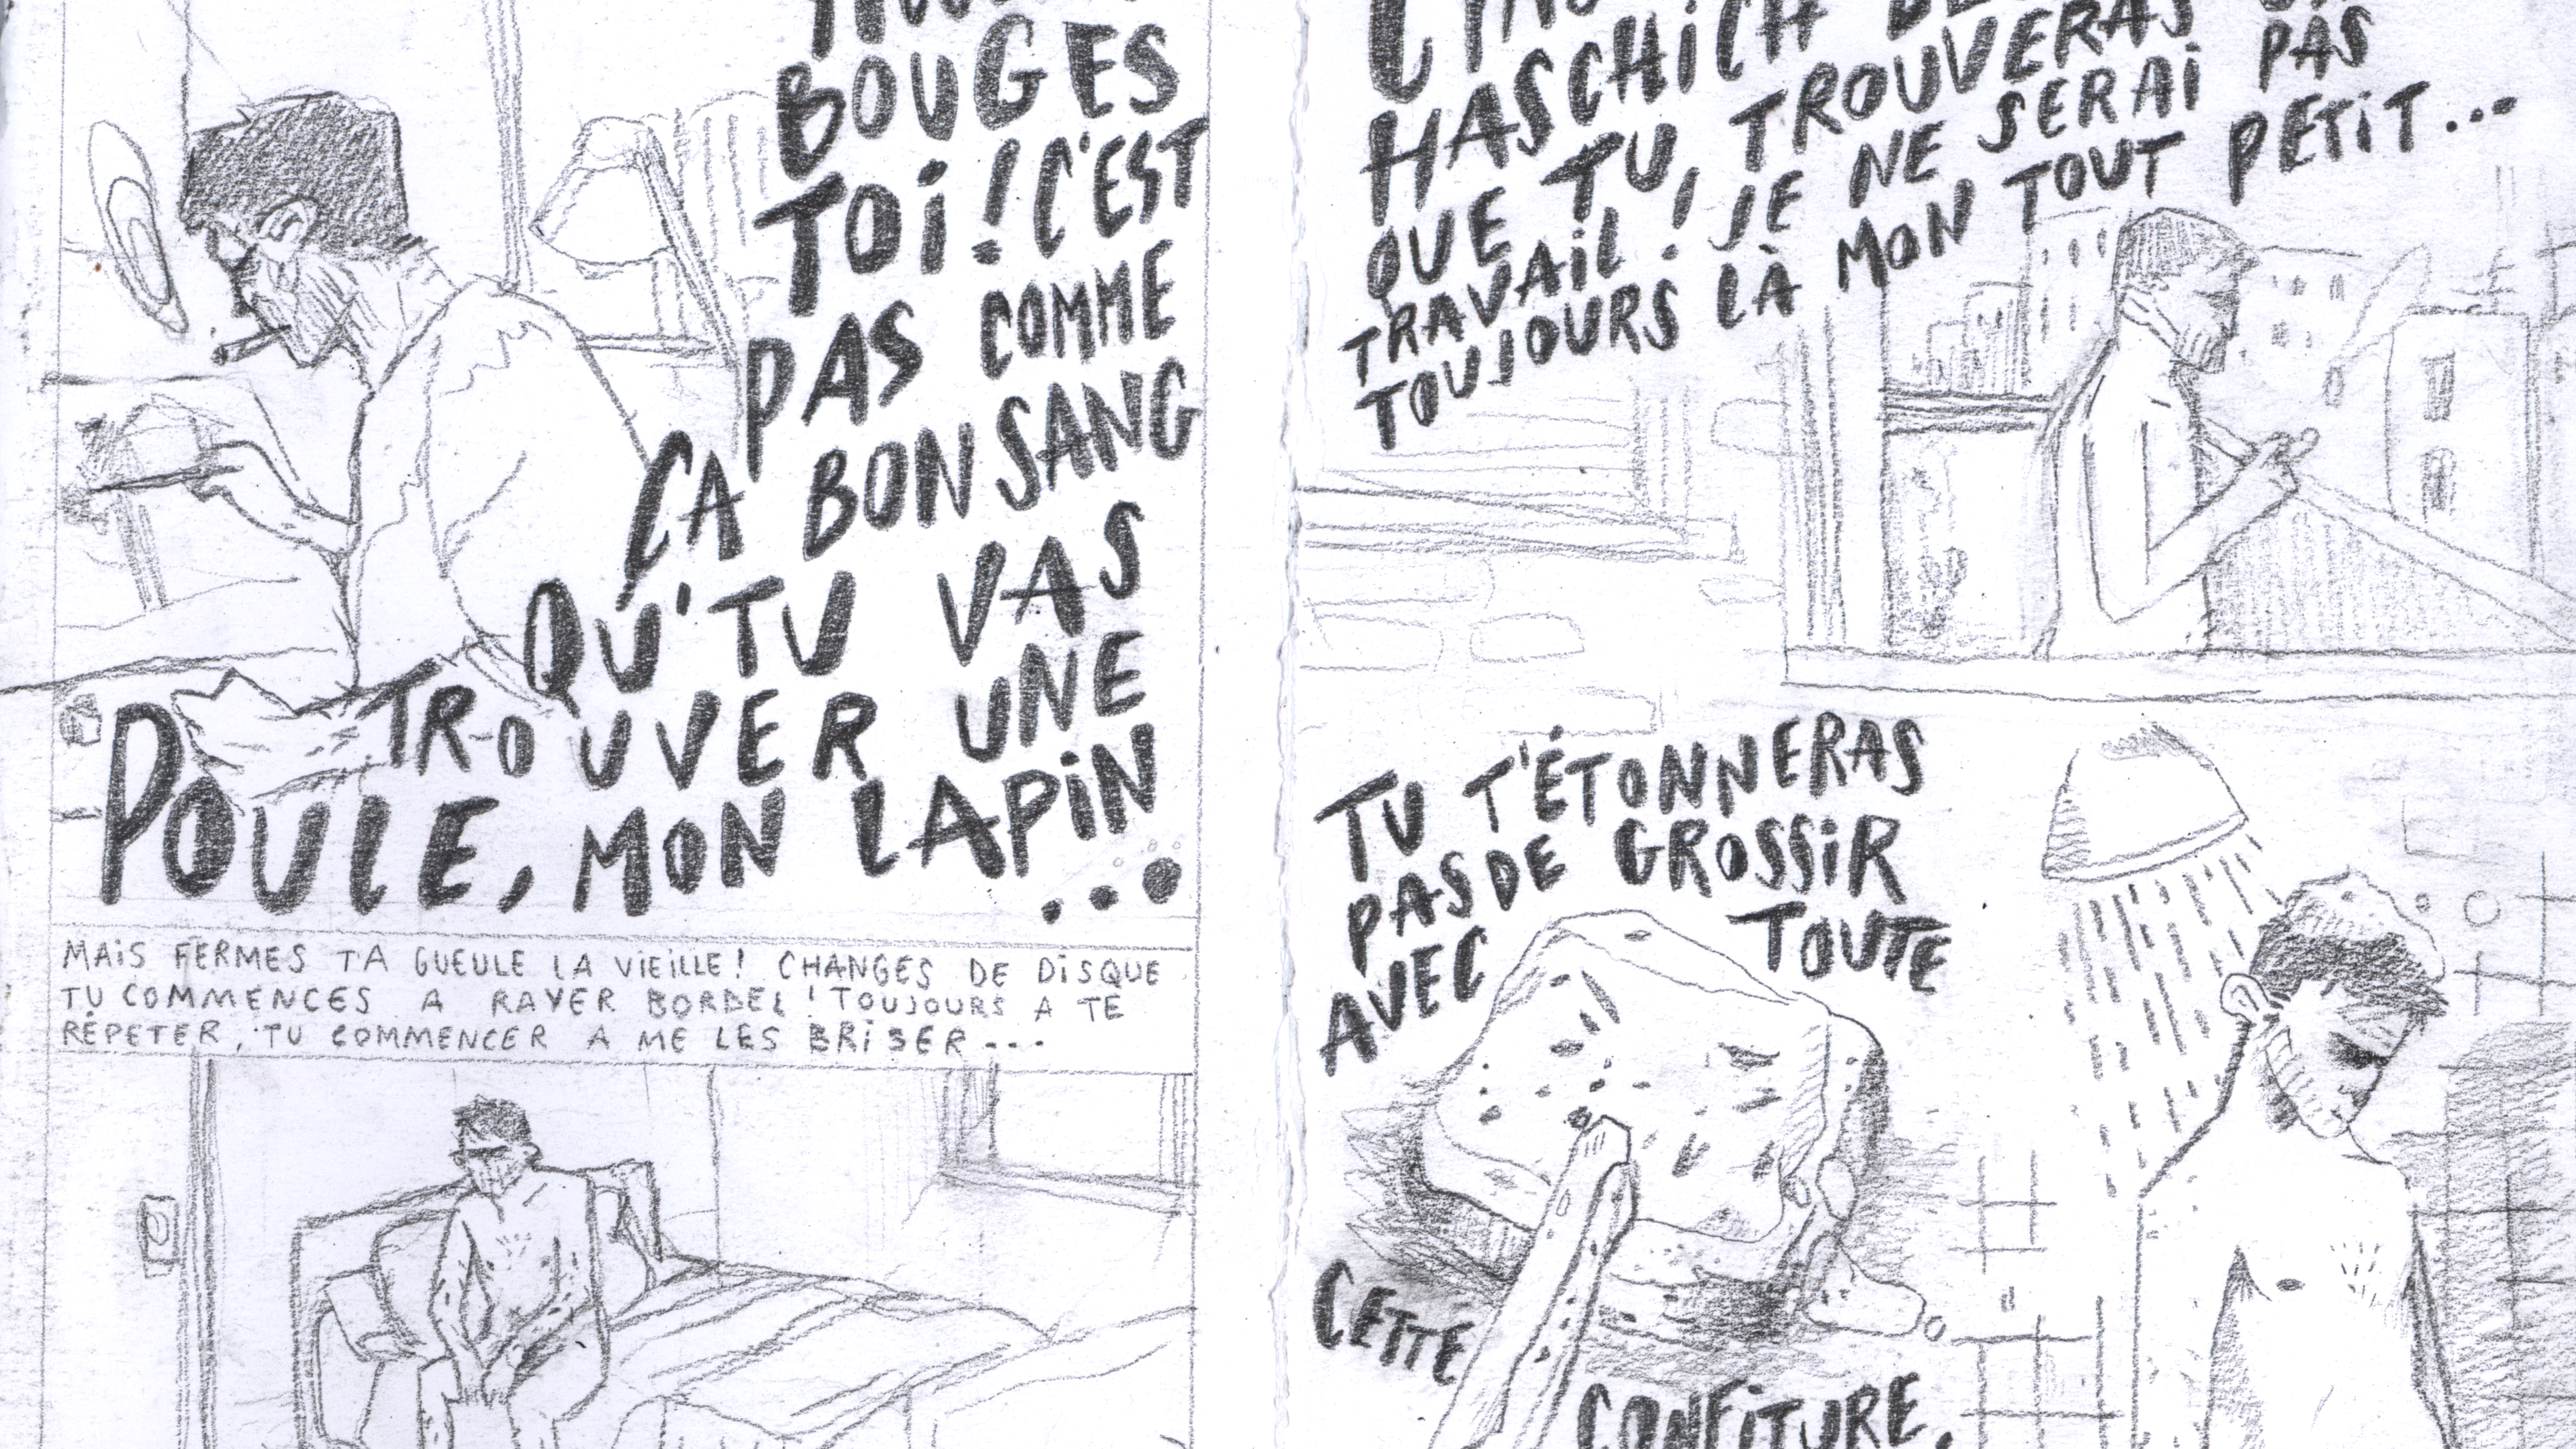 BOUGES
TOi ! C'EST
PAS COMME
ÇA BON SANG
QU'TU VAS
TROUVER UNE
POULE, MON LAPiN
...
MAiS FERMES TA GUEULE LA ViEiLLE ! CHANGES DE DiSQUE
TU COMMENCES A RAYER BORDEL ! TOUJOURS A TE
RÉPETER, TU COMMENCER A ME LES BRiSER ...
HASCHiCH
QUE TU TROUVERAS
TRAVAiL ! JE NE SERAi PAS
TOUJOURS LÀ MON TOUT PETiT...
TU T'ÉTONNERAS
PAS DE GROSSiR
AVEC TOUTE
CETTE
CONFiTURE,